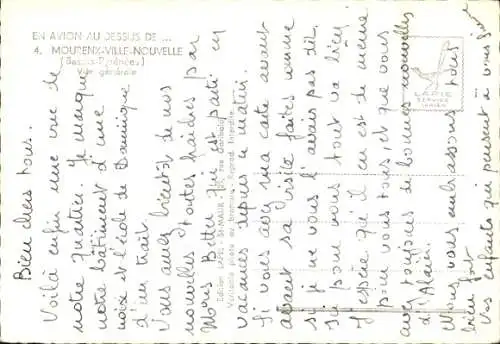 EN AVION AU DESSUS DE ...
4. MOURENX-VILLE-NOUVELLE
(Basses-Pyrénées)
Vue générale
LAPIE
SERVICE
AERIEN
Edition LAPIE - St-MAUR
Véritable photo au bromure - Reprod. Interdite
Bien chers tous.
Voilà enfin une vue de
notre quartier. Je marque
notre bâtiment d'une
et l'école de Dominique
d'un trait.
Vous aurez bientôt de nos
nouvelles toutes fraîches par
qui est parti en
vacances depuis ce matin.
Si vous avez ma carte avant
avant sa visite faites comme
si je ne vous l'avais pas dit.
Ici pour nous tout va bien.
J'espère qu'il en est de même
pour vous tous et que vous
avez toujours de bonnes nouvelles
d'Alain.
Nous vous embrassons tous
bien fort
Vos enfants qui pensent à vous